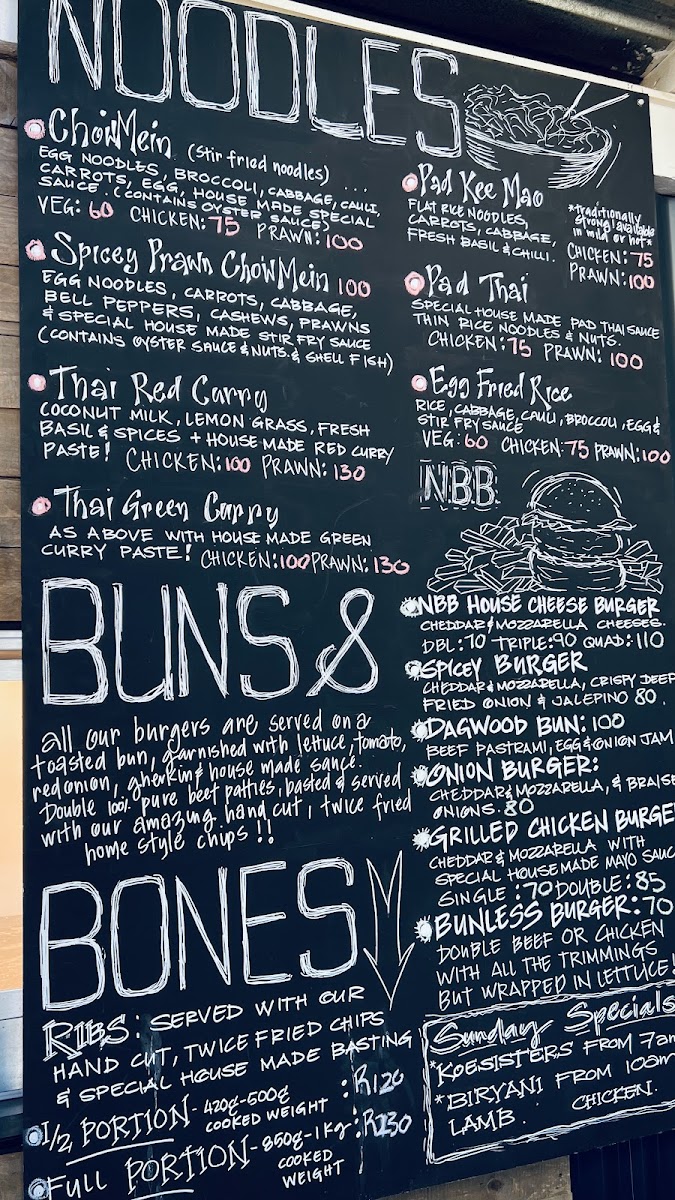 NOODLES
ChowMein (Stir fried noodles)
EGG NOODLES, BROCCOLI, CABBAGE, CAULI, ...
CARROTS, EGG, HOUSE MADE SPECIAL
SAUCE. (CONTAINS OYSTER SAUCE)
VEG: 60 CHICKEN: 75 PRAWN: 100
Spicey Prawn ChowMein 100
EGG NOODLES, CARROTS, CABBAGE,
BELL PEPPERS, CASHEWS, PRAWNS
& SPECIAL HOUSE MADE STIR FRY SAUCE
(CONTAINS OYSTER SAUCE & NUTS. & SHELL FISH)
Thai Red Curry
COCONUT MILK, LEMON GRASS, FRESH
BASIL & SPICES + HOUSE MADE RED CURRY
PASTE! CHICKEN: 100 PRAWN: 130
Thai Green Curry
AS ABOVE WITH HOUSE MADE GREEN
CURRY PASTE! CHICKEN: 100 PRAWN: 130
Pad Kee Mao
FLAT RICE NOODLES,
CARROTS, CABBAGE,
FRESH BASIL & CHILLI.
*traditionally
strong/available
in mild or hot*
CHICKEN: 75
PRAWN: 100
Pad Thai
SPECIAL HOUSE MADE PAD THAI SAUCE
THIN RICE NOODLES & NUTS.
CHICKEN: 75 PRAWN: 100
Egg Fried Rice
RICE, CABBAGE, CAULI, BROCCOLI, EGG &
STIR FRY SAUCE
VEG: 60 CHICKEN: 75 PRAWN: 100
BUNS &
all our burgers are served on a
toasted bun, garnished with lettuce, tomato,
red onion, gherkin & house made sauce.
Double 100% pure beef patties, basted & served
with our amazing hand cut, twice fried
home style chips !!
N.B.B.
NBB HOUSE CHEESE BURGER
CHEDDAR & MOZZARELLA CHEESES.
DBL: 70 TRIPLE: 90 QUAD: 110
SPICEY BURGER
CHEDDAR & MOZZARELLA, CRISPY DEEP
FRIED ONION & JALEPINO 80.
DAGWOOD BUN: 100
BEEF PASTRAMI, EGG & ONION JAM
ONION BURGER:
CHEDDAR & MOZZARELLA, & BRAISE
ONIONS. 80
GRILLED CHICKEN BURGE
CHEDDAR & MOZZARELLA WITH
SPECIAL HOUSE MADE MAYO SAUC
SINGLE: 70 DOUBLE: 85
BUNLESS BURGER: 70
DOUBLE BEEF OR CHICKEN
WITH ALL THE TRIMMINGS
BUT WRAPPED IN LETTUCE!
BONES
RIBS: SERVED WITH OUR
HAND CUT, TWICE FRIED CHIPS
& SPECIAL HOUSE MADE BASTING
1/2 PORTION - 420g-500g : R120
COOKED WEIGHT
FULL PORTION - 850g-1Kg : R230
COOKED
WEIGHT
Sunday Specials
*KOESISTERS FROM 7am
*BIRYANI FROM 10am
LAMB. CHICKEN.